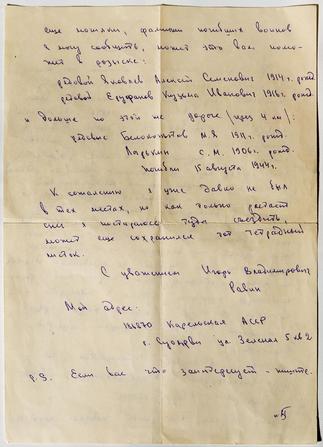 еще могилки, фамилии погибших воинов
я могу сообщить, может это вам помо-
жет в розыске:
рядовой Яковлев Алексей Семенович 1914 г. рожд.
рядовой Ерофанов Кузьма Иванович 1916 г. рожд.
и дальше по этой же дороге (через 4 км):
рядовые Белокопытов М.Я 1911 г. рожд.
Ларькин С.М. 1906 г. рожд.
погибли 15 августа 1944 г.
К сожалению я уже давно не был
в тех местах, но как только растает
снег я постараюсь туда съездить,
может еще сохранился тот тетрадный
листок.
С уважением Игорь Владимирович
Равин
Мой адрес:
Карельская АССР
г. Суоярви ул Зеленая 5 кв 2
P.S. Если вас что заинтересует - пишите.